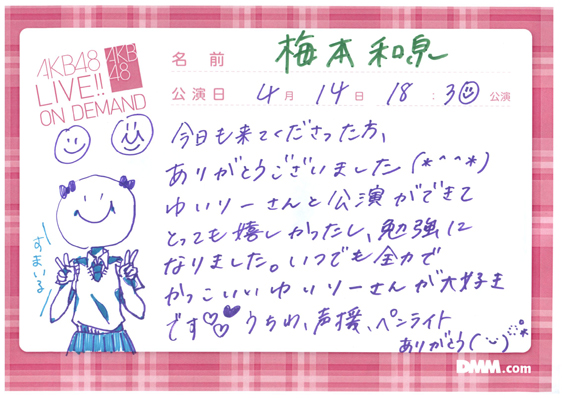 AKB48
LIVE!!
ON DEMAND
AKB
48
名前 梅本和泉
公演日 4月 14日 18:30 公演
今日も来てくださった方、
ありがとうございました(*^^*)
ゆいりーさんと公演ができて
とっても嬉しかったし、勉強に
なりました。いつでも全力で
かっこいいゆいりーさんが大好き
です♡♥うちわ、声援、ペンライト
ありがとう(˙ᵕ˙)
すまいる
DMM.com